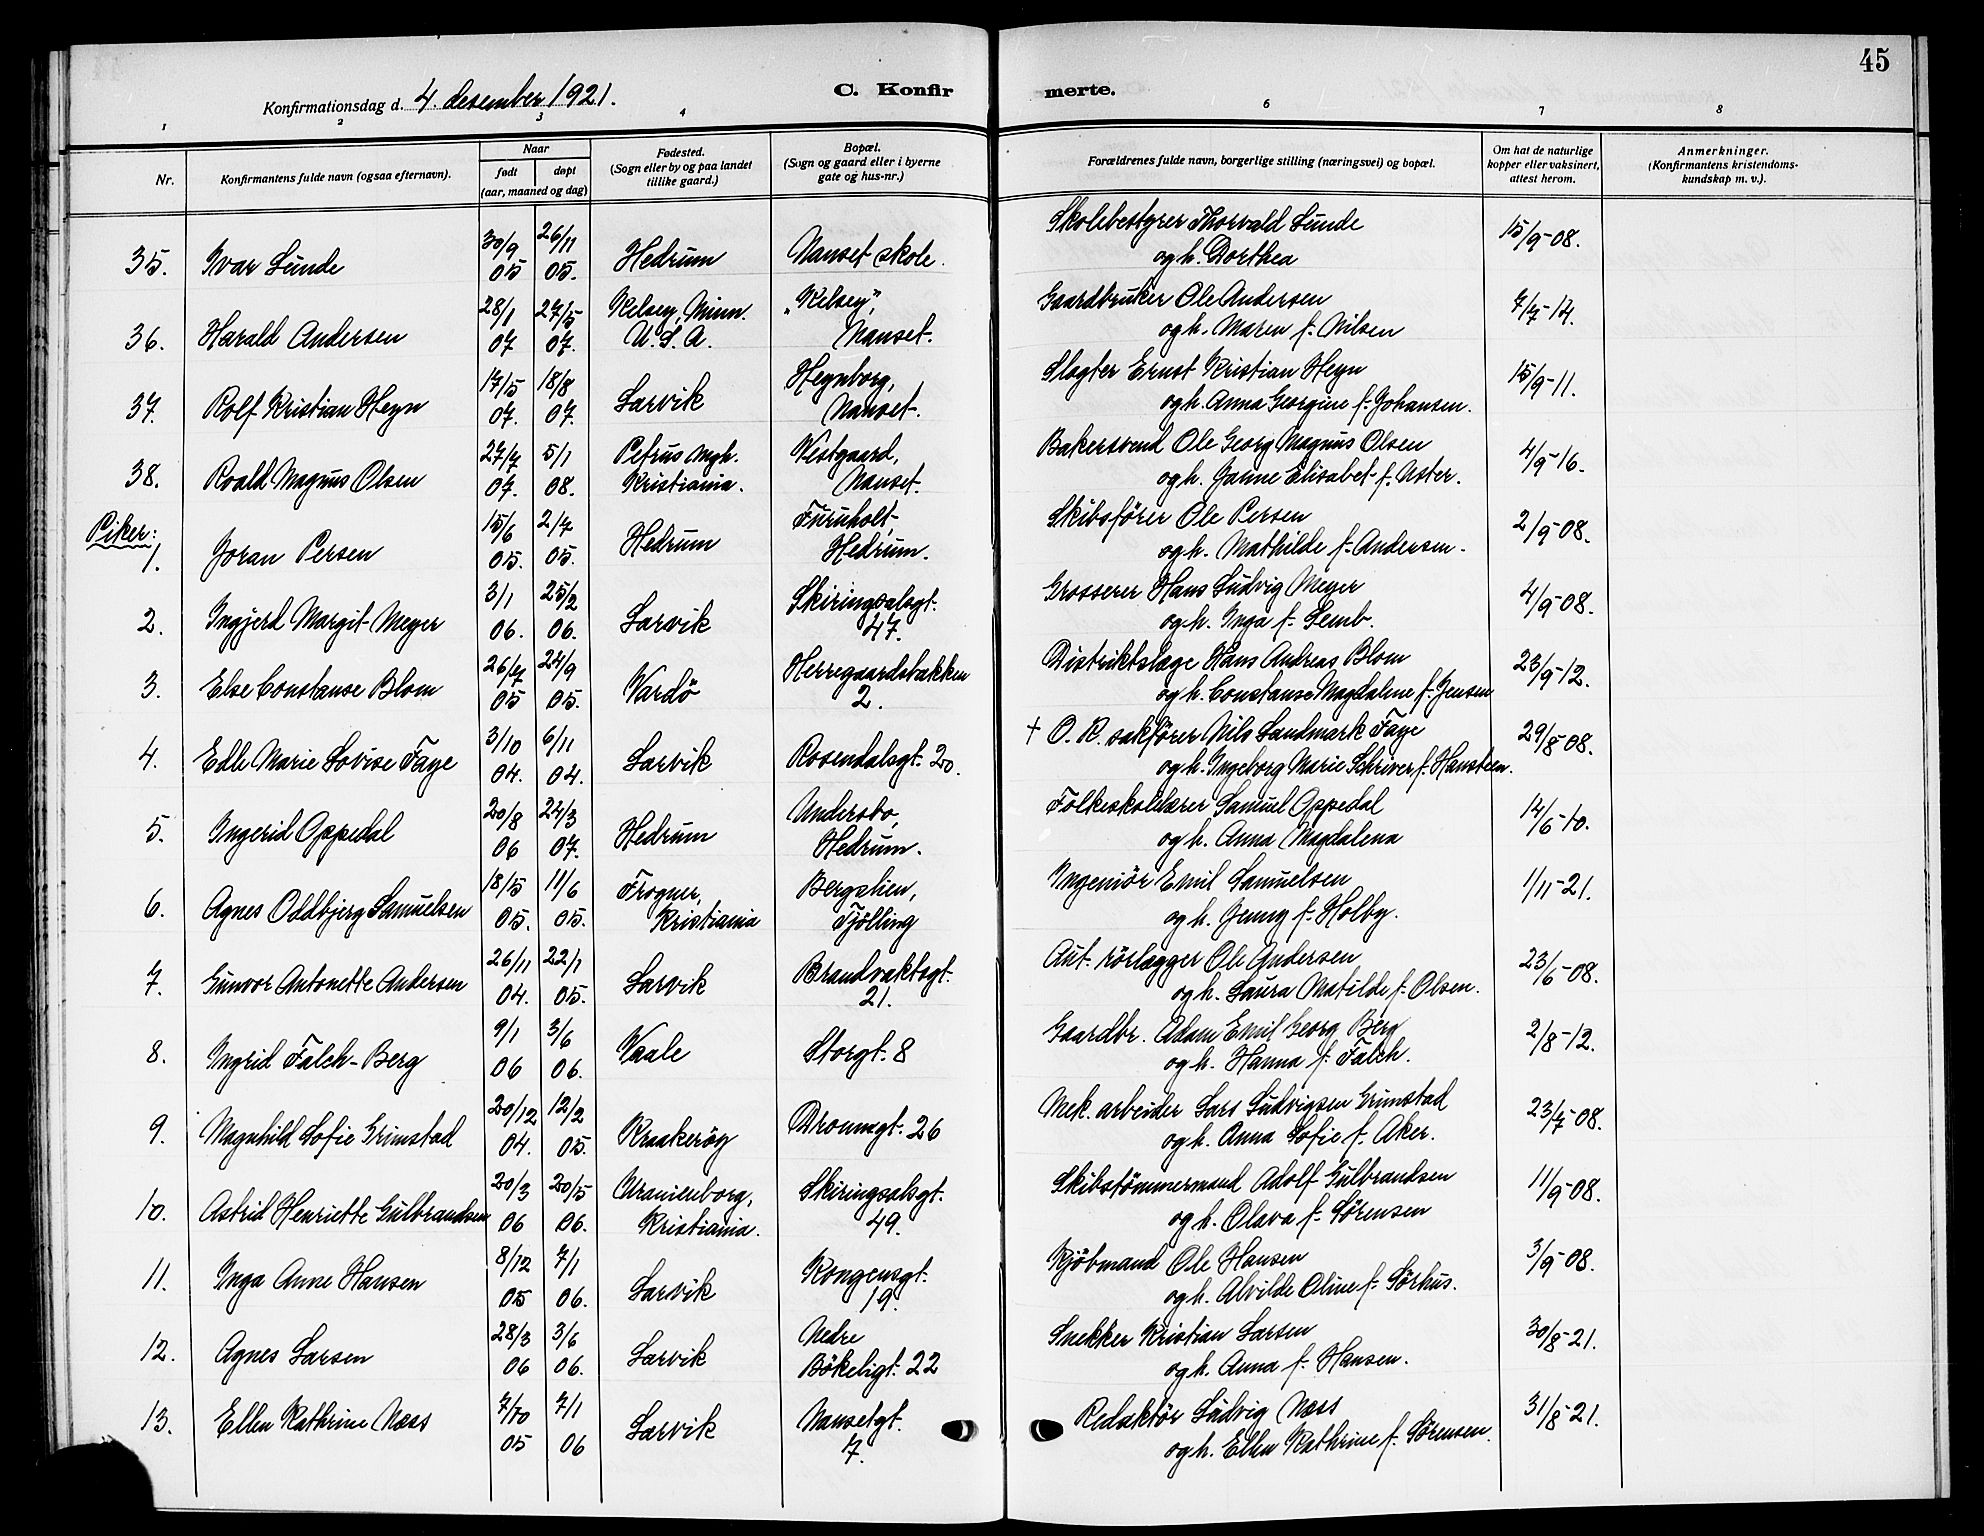 45
Konfirmationsdag d. 4. desember 1921.
C. Konfirmerte.
1 2 3 4 6 7 8
Nr.
Konfirmantens fulde navn (ogsaa efternavn).
Naar
født døpt
(aar, maaned og dag)
Fødested.
(Sogn eller by og paa landet
tillike gaard.)
Bopæl.
(Sogn og gaard eller i byerne
gate og hus-nr.)
Forældrenes fulde navn, borgerlige stilling (næringsvei) og bopæl.
Om hat de naturlige
kopper eller vaksinert,
attest herom.
Anmerkninger.
(Konfirmantens kristendoms-
kundskap m. v.).
30/9 26/11 Skolebestyrer Thorvald Lunde 15/9-08.
35. Ivar Lunde 05 05. Hedrum Nanset skole. og h. Dorthea
28/1 27/5 Kelsey, Minn. "Kelsey", Gaardbruker Ole Andersen 7/7-14.
36. Harald Andersen 07 07. U.S.A. Nanset. og h. Maren f. Nilsen
17/5 18/8 Heynborg, Slagter Ernst Kristian Heyn 15/9-11.
37. Rolf Kristian Heyn 07. 07. Larvik Nanset. og h. Anna Georgine f. Johansen.
27/7 5/1 Petrus mgh. Vestgaard, Bakersvend Ole Georg Magnus Olsen 4/9-16.
38. Roald Magnus Olsen 07. 08. Kristiania. Nanset. og h. Janne Elisabet f. Aster.
Piker:
15/6 2/7 Furuholt, Skibsfører Ole Persen 2/9-08.
1. Joran Persen 05. 05. Hedrum Hedrum. og h. Mathilde f. Andersen.
3/1 25/2 Skiringsalsgt. Grosserer Hans Ludvig Meyer 4/9-08.
2. Ingjerd Margit Meyer 06. 06. Larvik 47. og h. Inga f. Lemb.
26/7 24/9 Herregaardsbakken Distriktslæge Hans Andreas Blom 23/9-12.
3. Else Constanse Blom 05 05. Vardö 2. og h. Constanse Magdalene f. Jensen
3/10 6/11 + O.R. sakfører Nils Landmark Faye 29/8-08.
4. Edle Marie Lovise Faye 04. 04. Larvik Rosendalsgt. 20. og h. Ingeborg Marie Schriver f. Hansteen.
20/8 24/3 Andersbo, Folkeskolelærer Samuel Oppedal 14/6-10.
5. Ingerid Oppedal 06 07. Hedrum Hedrum. og h. Anna Magdalena
18/5 11/6 Frogner, Bergslien, Ingeniör Emil Samuelsen 1/11-21.
6. Agnes Oddbjørg Samuelsen 05. 05. Kristiania Tjölling og h. Jenny f. Holby.
26/11 22/1 Brandvaktsgt. Aut. rörlægger Ole Andersen 23/6-08.
7. Gunvor Antonette Andersen 04. 05. Larvik 21. og h. Laura Matilde f. Olsen.
9/1 3/6 Gaardbr. Adam Emil Georg Berg 2/8-12.
8. Ingrid Falch-Berg 06 06. Vaale Storgt. 8 og h. Hanna f. Falch.
20/12 12/2 Mek. arbeider Lars Ludvigsen Grimstad 23/7-08.
9. Magnhild Sofie Grimstad 04. 05. Kraakeröy Dronnsgt. 26 og h. Anna Sofie f. Aker.
20/3 20/5 Uranienborg, Skiringsalsgt. Skibstömmermand Adolf Gulbrandsen 11/9-08.
10. Astrid Henriette Gulbrandsen 06 06. Kristiania. 49. og h. Olava f. Sörensen
8/12 7/1 Kongensgt. Kjöbmand Ole Hansen 3/9-08.
11. Inga Anne Hansen 05 06. Larvik 19. og h. Alvilde Oline f. Sörhus.
28/3 3/6 Nedre Snekker Kristian Larsen 30/8-21.
12. Agnes Larsen 06 06. Larvik Bökeligt. 22 og h. Anna f. Hansen.
7/10 7/1 Nansetgt. Redaktör Ludvig Næss 31/8-21.
13. Ellen Kathrine Næss 05 06 Larvik 7. og h. Ellen Kathrine f. Sörensen.